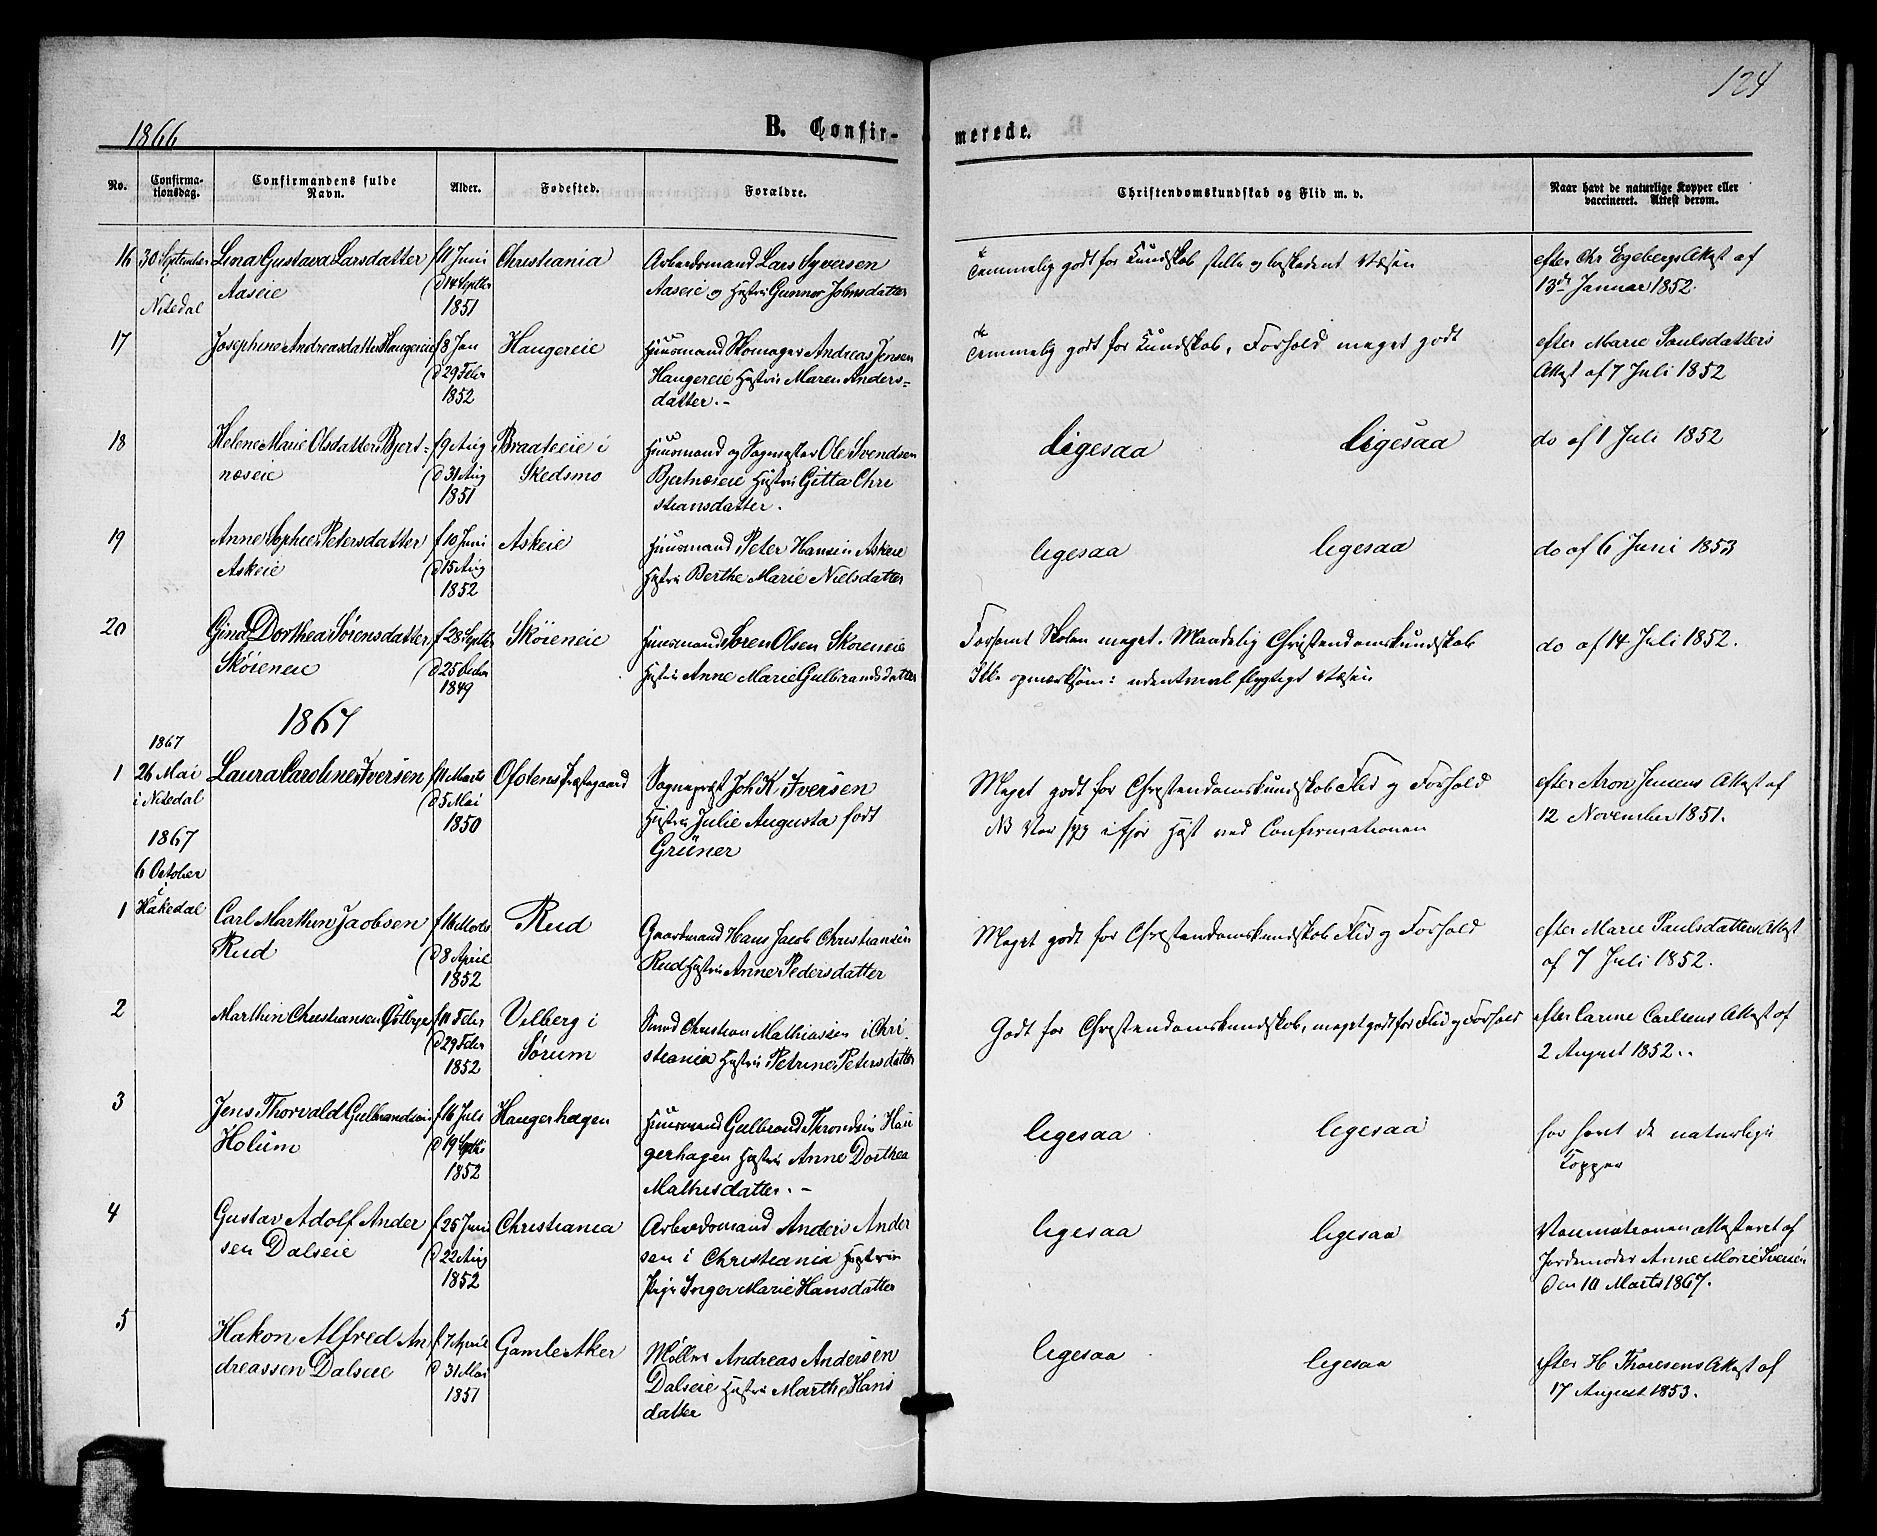 124
1866
B. Confir-
merede.
No.
Confirma-
tionsdag.
Confirmandens fulde
Navn.
Alder.
Fødested.
Forældre.
Christendomskundskab og Flid m. v.
Naar havt de naturlige Kopper eller
vaccineret. Attest derom.
16 30 September Lina Gustava Larsdatter f 11 Juni Christiania Arbeidsmand Lars Syversen Temmelig godt for Kundskab stille og beskedent Væsen efter Chr Egebergs Attest af
Nitedal Aaseie d 14 Septbr 1851 Aaseie og Hustru Gunnor Johnsdatter 13de Januar 1852.
17 Josephine Andreasdatter Haugereie f 8 Jan Haugereie Huusmand Skomager Andreas Jensen Temmelig godt for Kundskab, Forhold meget godt efter Marie Paulsdatters
d 29 Febr Haugereie Hustru Maren Anders= Attest af 7 Juli 1852
1852 datter.-
18 Helene Marie Olsdatter Bjert= f 9 Aug Braateeie i Huusmand og Sagmester Ole Svendsen Ligesaa Ligesaa do af 1 Juli 1852
næseie d 31 Aug Skedsmo Bjertnæseie Hustru Gitta Chri
1851 stiansdatter.
19 Anne Sophie Petersdatter f 10 Juni Askeie Huusmand Peter Hansen Askeie ligesaa ligesaa do af 6 Juni 1853
Askeie d 15 Aug Hustru Berthe Marie Nielsdatter
1852
20 Gina Dorthea Sørensdatter f 28 Septbr Skøieneie Huusmand Søren Olsen Skøieneie Forsømt Skolen meget. Maadelig Christendomskundskab do af 14 Juli 1852.
Skøieneie d 25 Decbr Hustru Anne Marie Gulbrandsdatter Ikke opmærksom: udentvivl flygtigt Væsen
1849
1867
1867
1 26 Mai Laura Caroline Iversen f 11 Marts Ofotens Præstegaard Sogneprest Joh K Iversen Meget godt for Christendomskundskab Flid og Forhold efter Aron Jensens Attest af
i Nitedal d 5 Mai Hustru Julie Augusta født NB Var syg ifjor Høst ved Confirmationen 12 November 1851.
1867 1850 Grüner
6 October
i
1 Hakedal Carl Marthin Jacobsen f 16 Marts Rud Gaardmand Hans Jacob Christiansen Meget godt for Christendomskundskab Flid og Forhold efter Marie Paulsdatters Attest
Rud d 8 April Rud Hustru Anne Pedersdatter af 7 Juli 1852.
1852
2 Marthin Christiansen Østbye f 11 Febr Vilberg i Smed Christian Mathiassen i Chri Godt for Christendomskundskab, meget godt for Flid og Forhold efter Carine Carlsens Attest af
d 29 Febr Sørum stiania Hustru Petrine Petersdatter 2 August 1852..
1852
3 Jens Thorvald Gulbrandsen f 16 Juli Haugerhagen Huusmand Gulbrand Thronsen Hau ligesaa ligesaa har havt de naturlige
Holum d 19 Septbr gerhagen Hustru Anne Dorthea Kopper
1852 Mathisdatter.-
4 Gustav Adolf Ander f 25 Juni Christiania Arbeidsmand Anders Ander ligesaa ligesaa Vaccinationen attesteret af
sen Dalseie d 22 Aug sen i Christiania Hustru Jordemoder Anne Marie Iversen
1852 Pige Inger Marie Hansdatter den 10 Marts 1867.
5 Hakon Alfred An f 7 April Gamle Aker Møller Andreas Andersen ligesaa ligesaa efter H Thoresens Attest af
dreassen Dalseie d 31 Mai Dalseie Hustru Marthe Hans 17 August 1853.
1851 datter